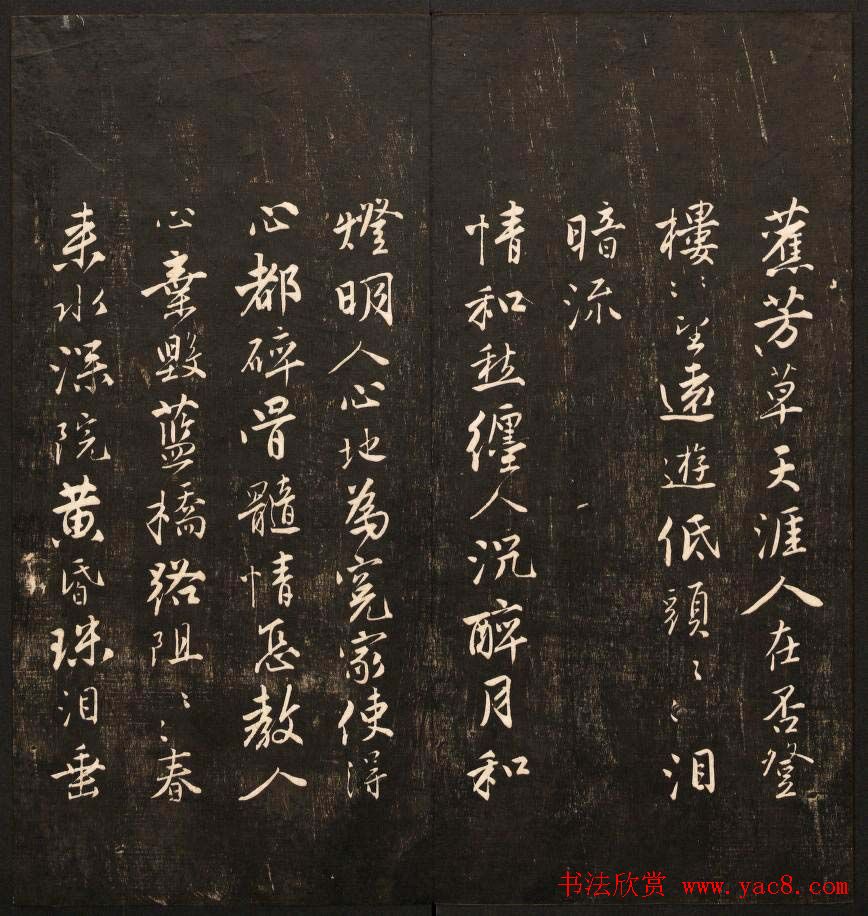 蕉芳草天涯人在否登
樓〻望遠遊低頭〻〻淚
暗流
情和愁纏人沉醉月和
燈明人心地為冤家使得
心都碎骨髓情思教人
心棄毀藍橋路阻〻〻春
來水深院黃昏珠泪垂
书法欣赏 www.yac8.com